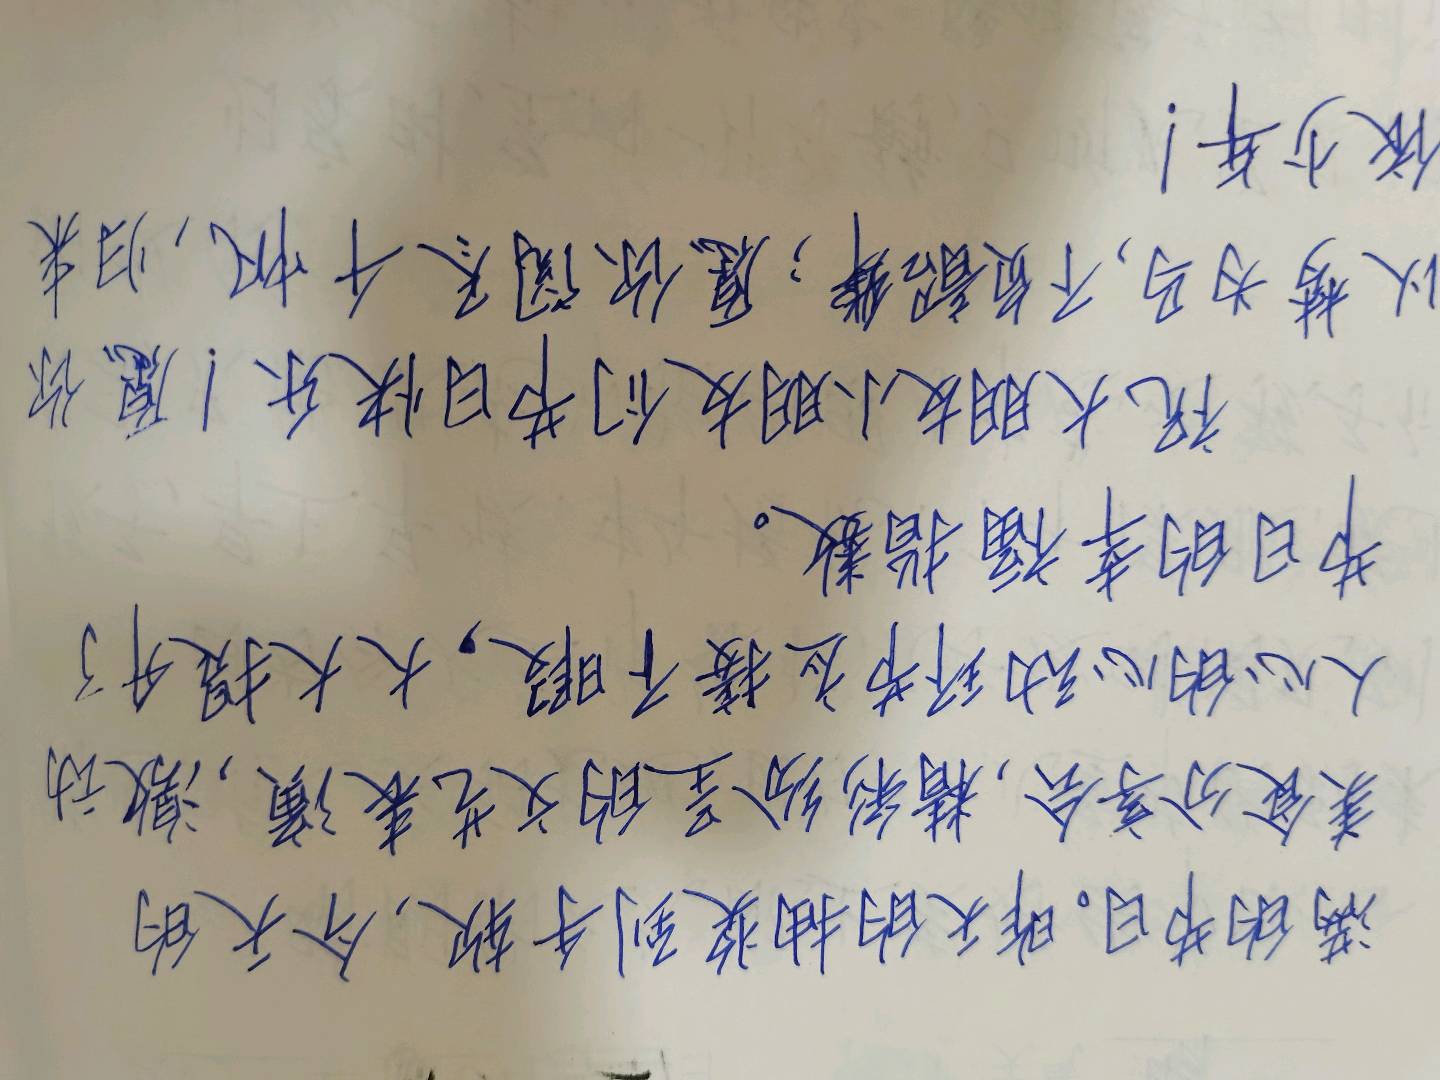 满的节日。昨天的抽奖到手软，今天的
美食分享会，精彩纷呈的文艺表演，激动
人心的心动环节应接不暇，大大提升了
节日的幸福指数。
祝大朋友小朋友们节日快乐！愿你
以梦为马，不负韶华；愿你阅尽千帆，归来
依少年！